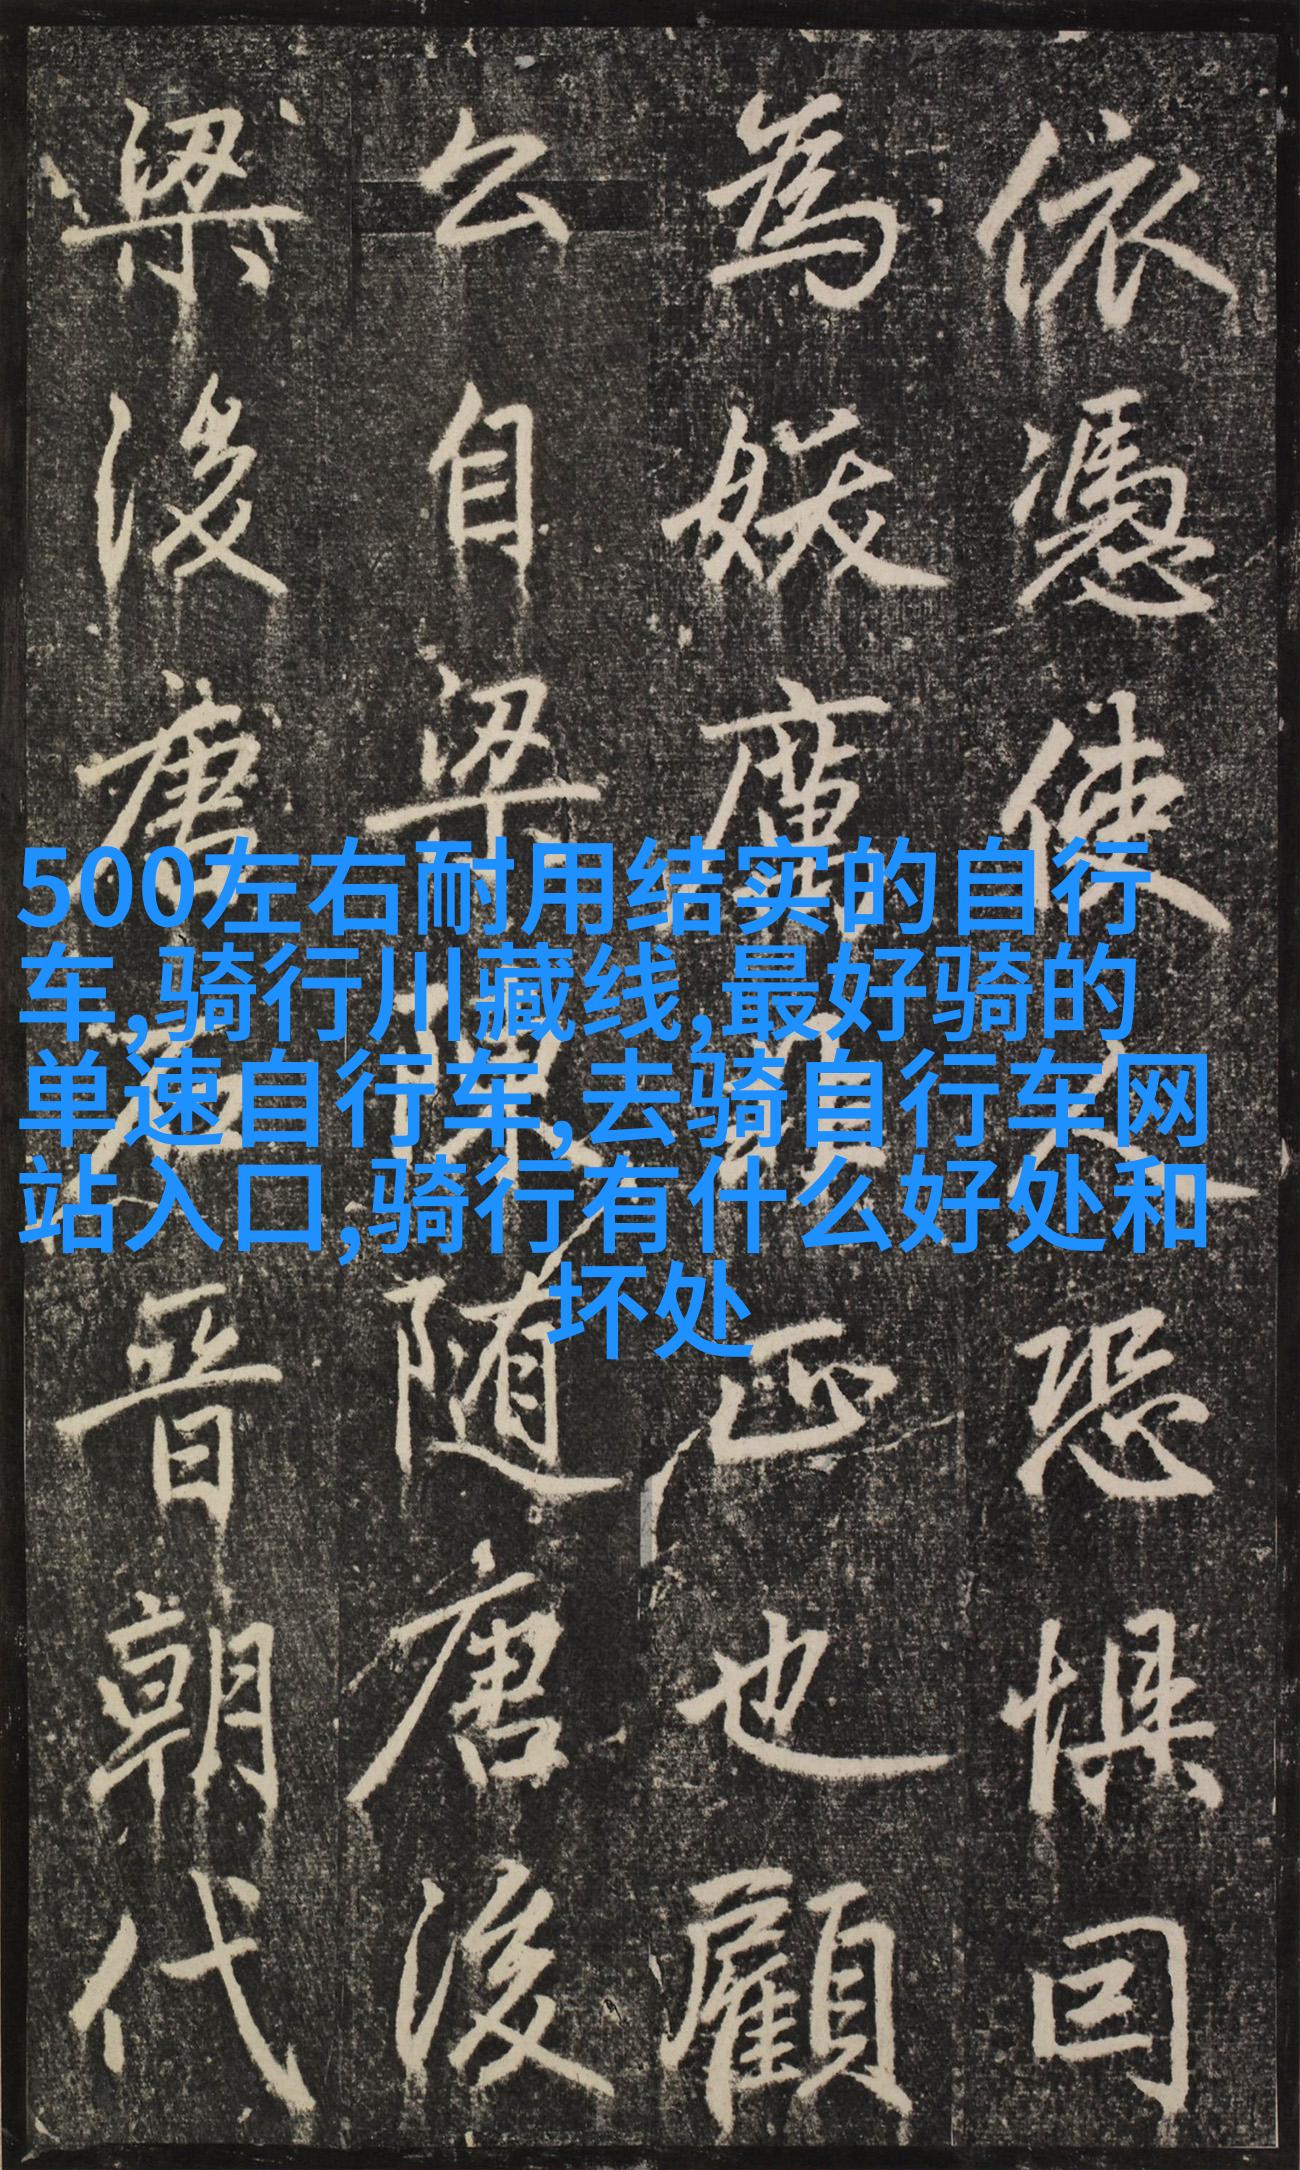 依憑使人恐懼囙
為妖正也顧
公自梁陳随唐後
梁後唐石晉朝代
500左右耐用结实的自行
车,骑行川藏线,最好骑的
单速自行车,去骑自行车网
站入口,骑行有什么好处和
坏处